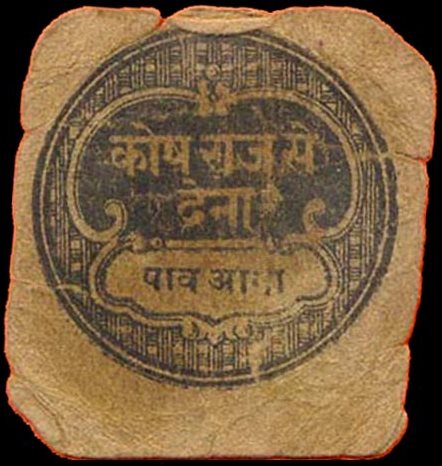 कोष राज से
देना
पाव आना